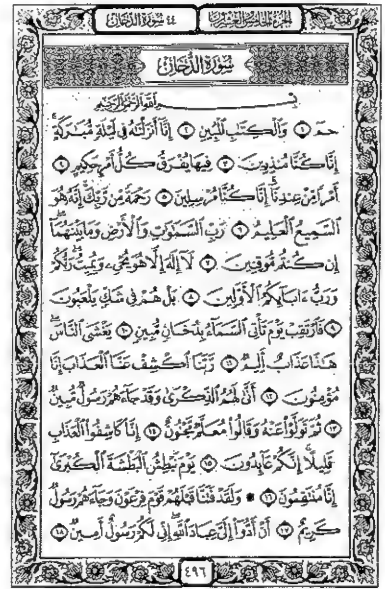 الجزء الخامس والعشرون
٤٤ سورة الدخان
سُورَةُ الدُّخَانِ
بِسْمِ اللَّهِ الرَّحْمَٰنِ الرَّحِيمِ
حمٓ ١ وَالْكِتَابِ الْمُبِينِ ٢ إِنَّا أَنزَلْنَاهُ فِي لَيْلَةٍ مُّبَارَكَةٍ
إِنَّا كُنَّا مُنذِرِينَ ٣ فِيهَا يُفْرَقُ كُلُّ أَمْرٍ حَكِيمٍ ٤
أَمْرًا مِّنْ عِندِنَا إِنَّا كُنَّا مُرْسِلِينَ ٥ رَحْمَةً مِّن رَّبِّكَ إِنَّهُ هُوَ
السَّمِيعُ الْعَلِيمُ ٦ رَبِّ السَّمَٰوَٰتِ وَالْأَرْضِ وَمَا بَيْنَهُمَا
إِن كُنتُم مُّوقِنِينَ ٧ لَا إِلَٰهَ إِلَّا هُوَ يُحْيِي وَيُمِيتُ رَبُّكُمْ
وَرَبُّ ءَابَائِكُمُ الْأَوَّلِينَ ٨ بَلْ هُمْ فِي شَكٍّ يَلْعَبُونَ
٩ فَارْتَقِبْ يَوْمَ تَأْتِي السَّمَاءُ بِدُخَانٍ مُّبِينٍ ١٠ يَغْشَى النَّاسَ
هَٰذَا عَذَابٌ أَلِيمٌ ١١ رَّبَّنَا اكْشِفْ عَنَّا الْعَذَابَ إِنَّا
مُؤْمِنُونَ ١٢ أَنَّىٰ لَهُمُ الذِّكْرَىٰ وَقَدْ جَاءَهُمْ رَسُولٌ مُّبِينٌ
١٣ ثُمَّ تَوَلَّوْا عَنْهُ وَقَالُوا مُعَلَّمٌ مَّجْنُونٌ ١٤ إِنَّا كَاشِفُوا الْعَذَابِ
قَلِيلًا إِنَّكُمْ عَائِدُونَ ١٥ يَوْمَ نَبْطِشُ الْبَطْشَةَ الْكُبْرَىٰ
إِنَّا مُنتَقِمُونَ ١٦ وَلَقَدْ فَتَنَّا قَبْلَهُمْ قَوْمَ فِرْعَوْنَ وَجَاءَهُمْ رَسُولٌ
كَرِيمٌ ١٧ أَنْ أَدُّوا إِلَيَّ عِبَادَ اللَّهِ إِنِّي لَكُمْ رَسُولٌ أَمِينٌ ١٨
٤٩٦